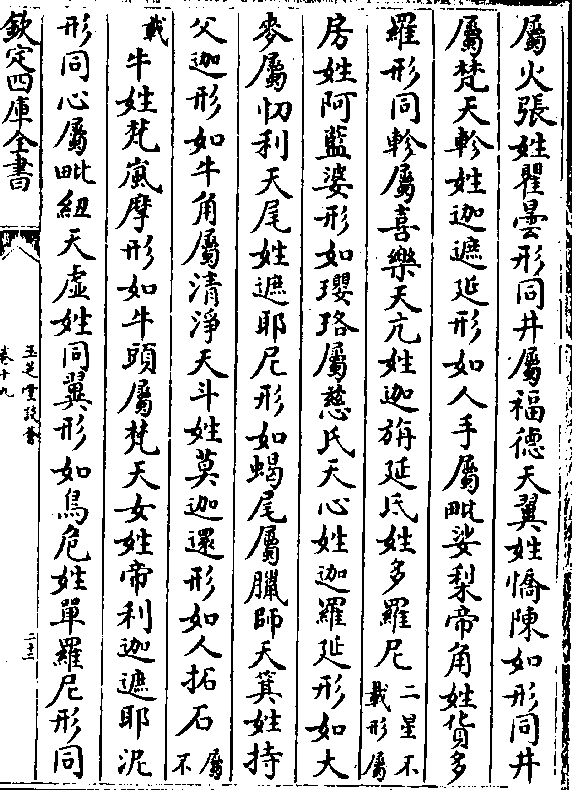 屬火張姓瞿曇形同井屬福德天翼姓憍陳如形同井
屬梵天軫姓迦遮延形如人手屬毗娑梨帝角姓貨多
羅形同軫屬喜樂天亢姓迦旃延氏姓多羅尼二星不載形屬
房姓阿藍婆形如瓔珞屬慈氏天心姓迦羅延形如大
麥屬忉利天尾姓遮耶尼形如蝎尾屬臘師天箕姓持
父迦形如牛角屬清淨天斗姓莫迦還形如人拓石屬不
載牛姓梵嵐摩形如牛頭屬梵天女姓帝利迦遮耶泥
形同心屬毗紐天虛姓同翼形如鳥危姓單羅尼形同
欽定四庫全書
玉芝堂談薈
卷十九
二十三